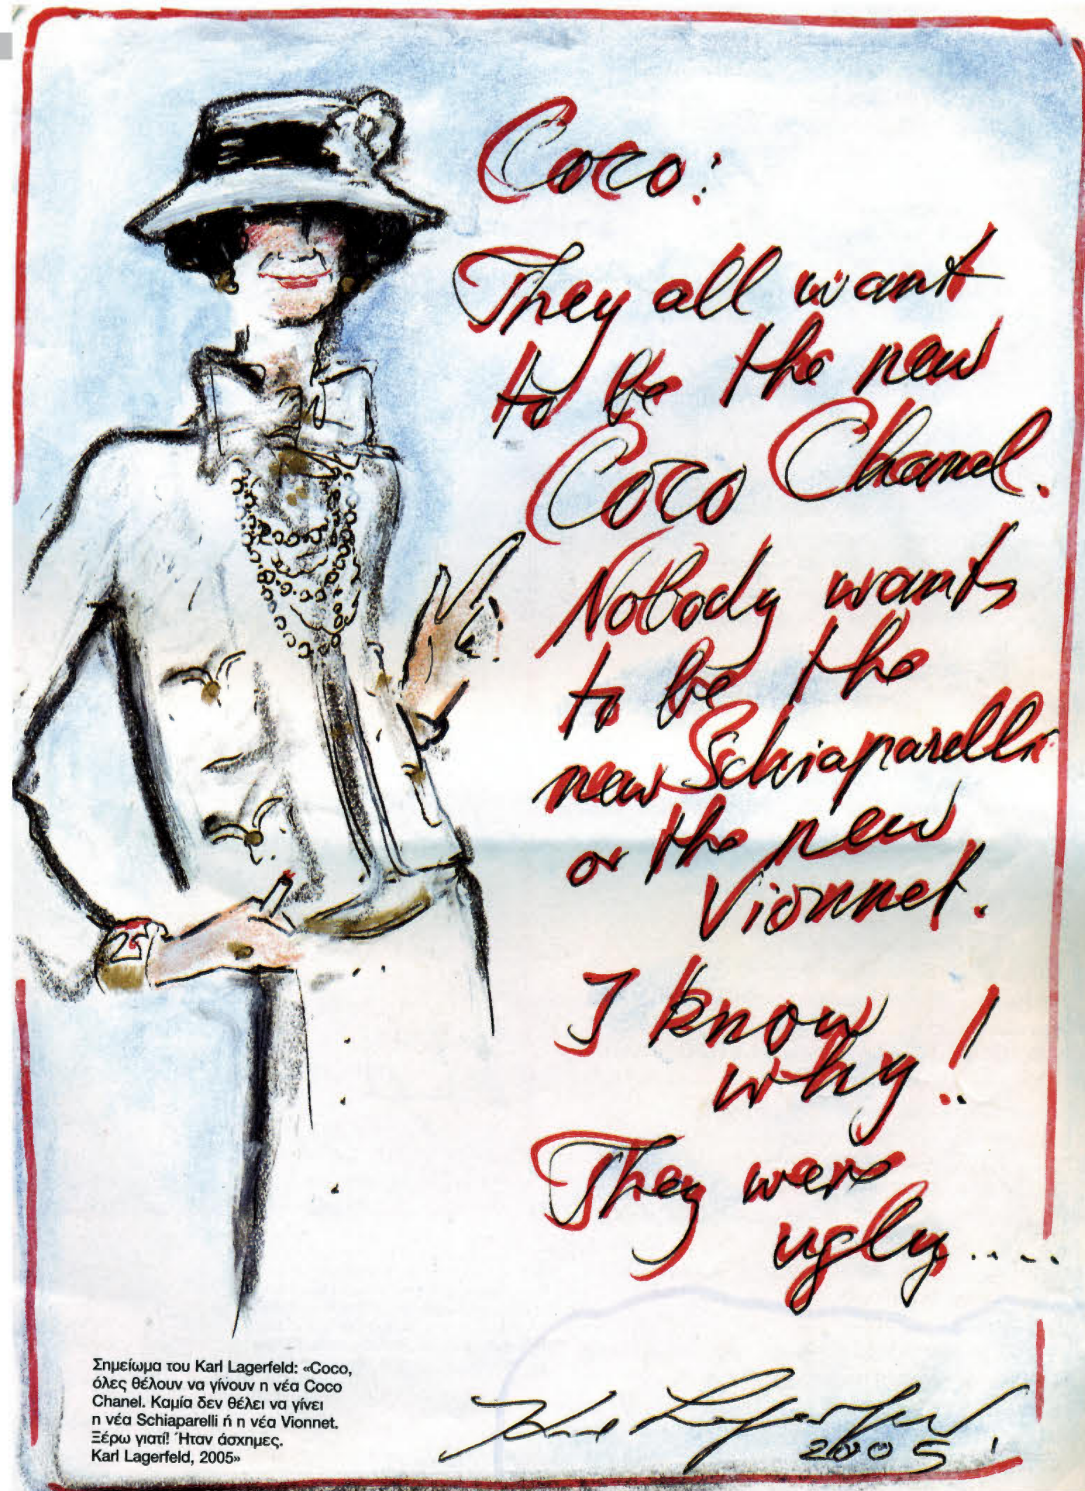 Coco:
They all want
to be the new
Coco Chanel.
Nobody wants
to be the
new Schiaparelli
or the new
Vionnet.
I know
why!
They were
ugly....
Karl Lagerfeld
2005
25
Σημείωμα του Karl Lagerfeld: «Coco,
όλες θέλουν να γίνουν η νέα Coco
Chanel. Καμία δεν θέλει να γίνει
η νέα Schiaparelli ή η νέα Vionnet.
Ξέρω γιατί! Ήταν άσχημες.
Karl Lagerfeld, 2005»